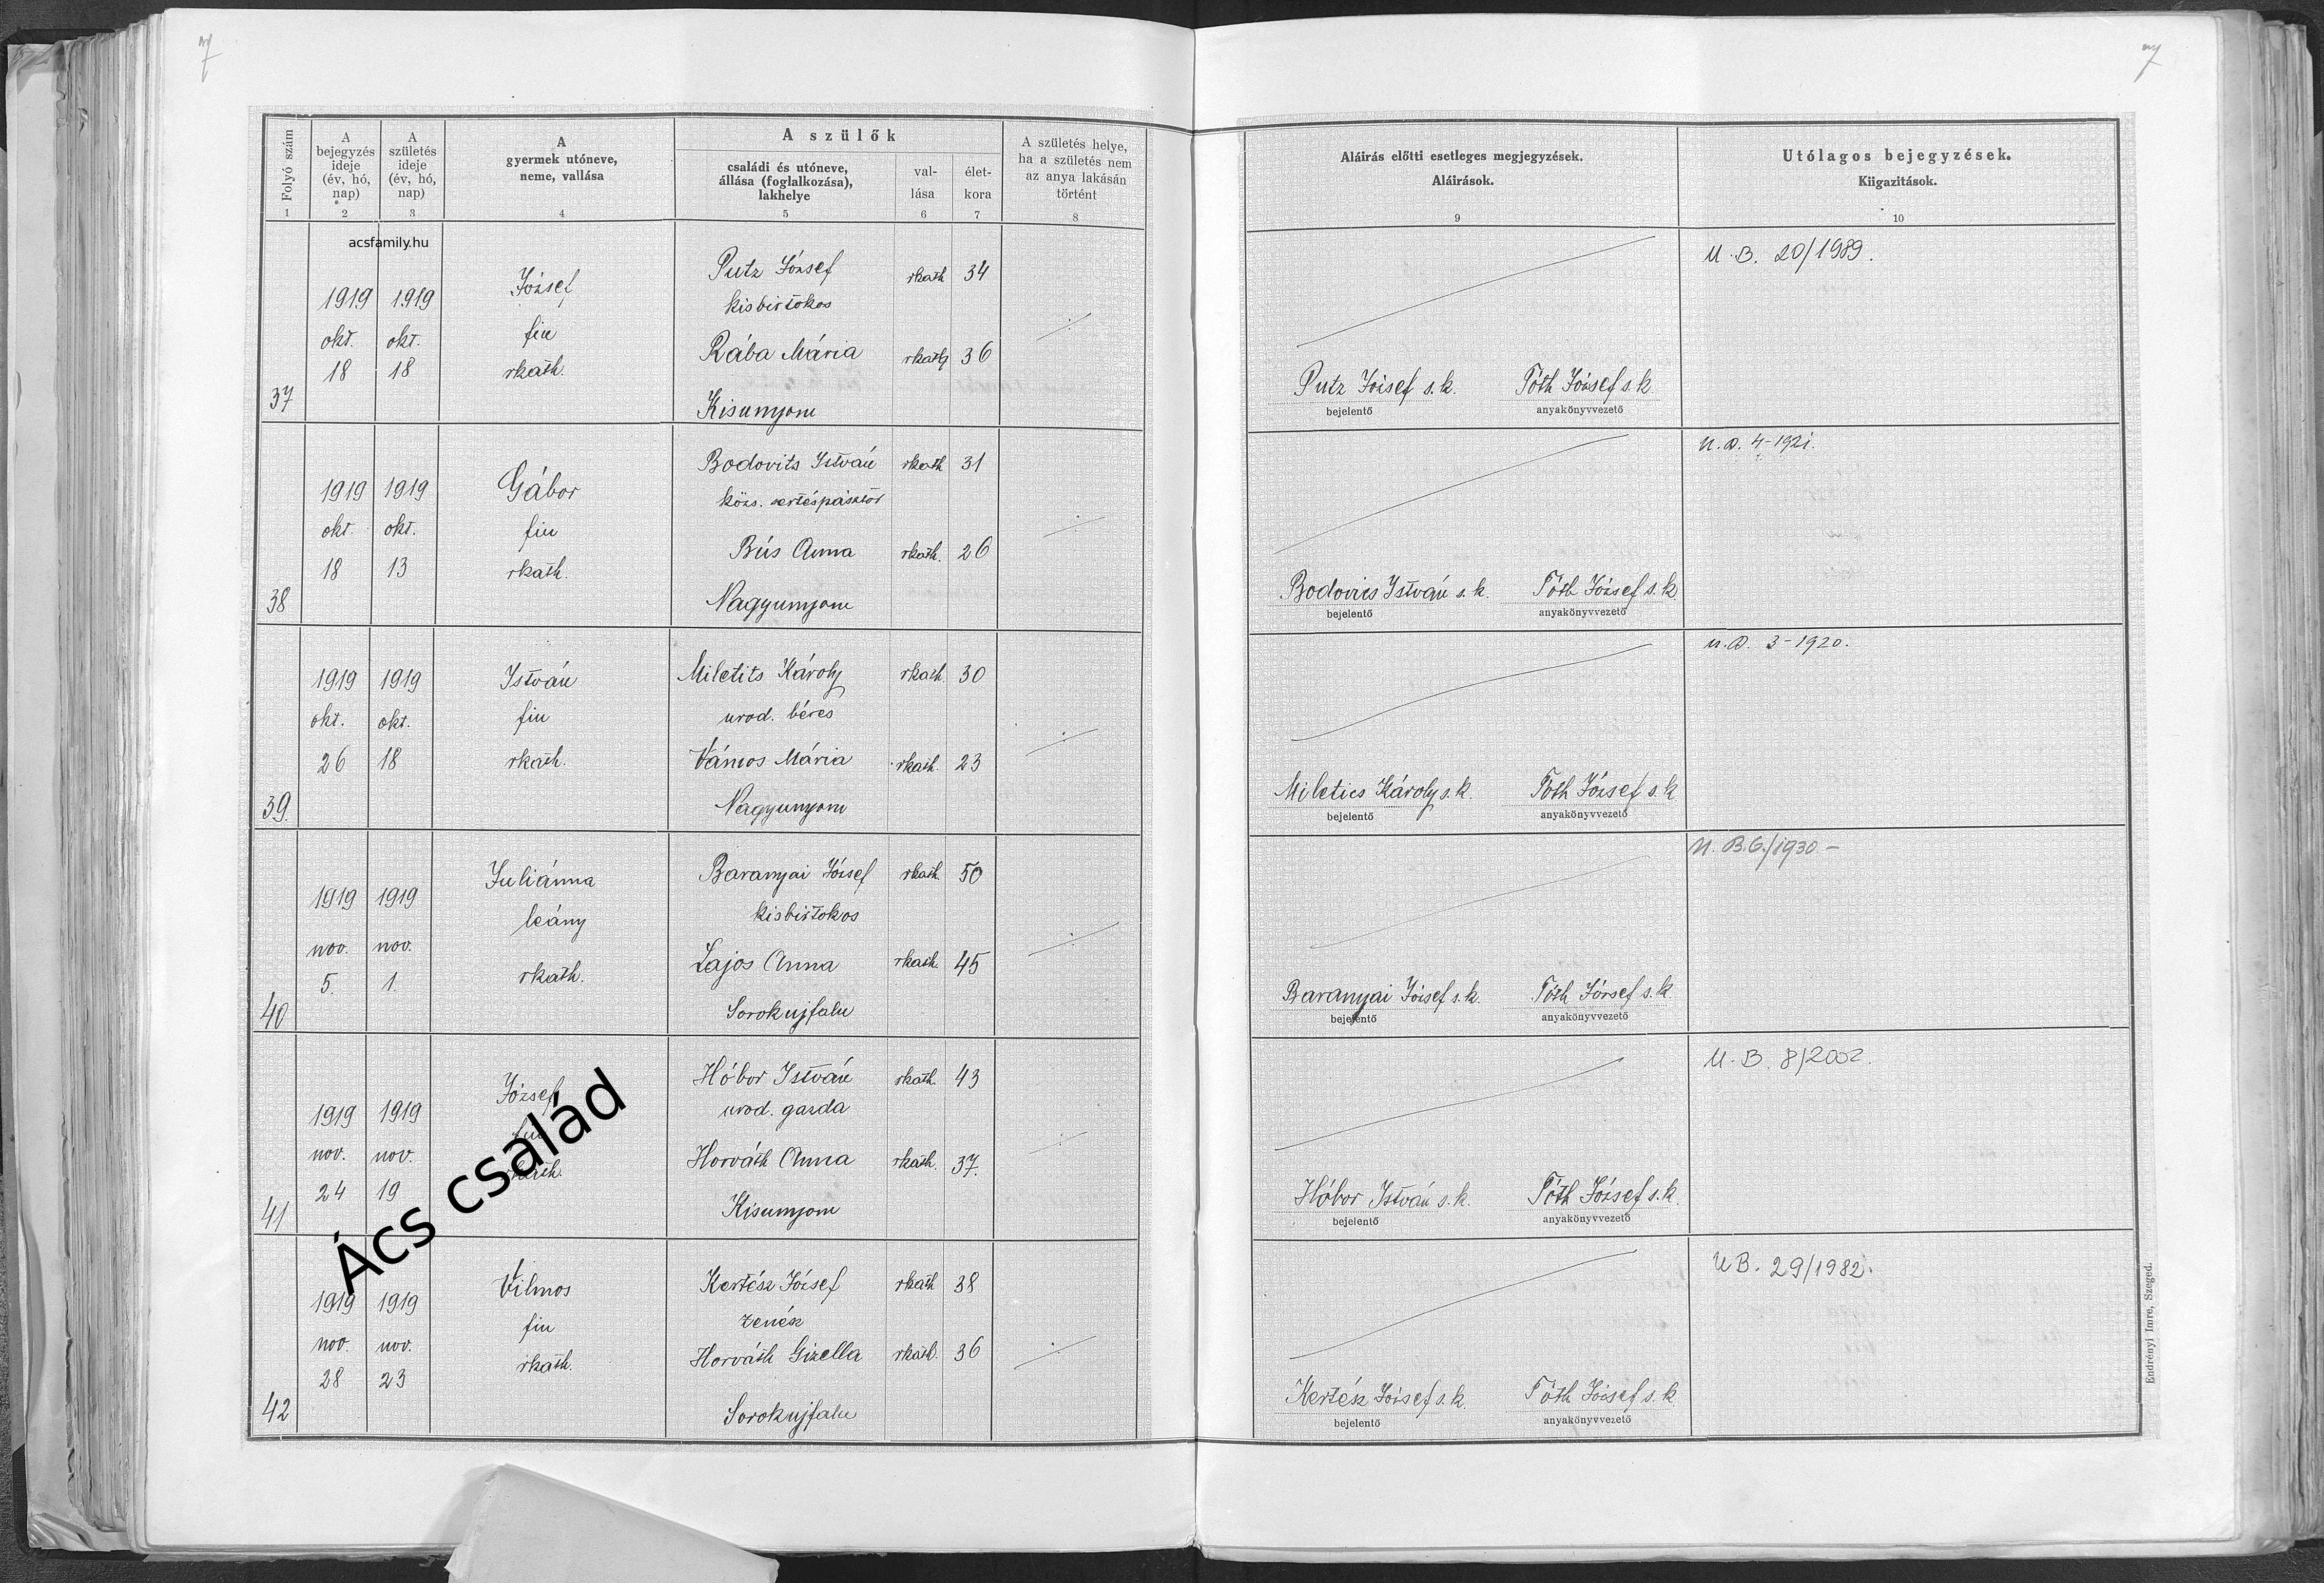 7
7
Folyó szám
A bejegyzés ideje (év, hó, nap)
A születés ideje (év, hó, nap)
A gyermek utóneve, neme, vallása
A szülők
családi és utóneve, állása (foglalkozása), lakhelye
val- lása
élet- kora
A születés helye, ha a születés nem az anya lakásán történt
1 2 3 4 5 6 7 8
Aláírás előtti esetleges megjegyzések.
Aláírások.
9
Utólagos bejegyzések.
Kiigazitások.
10
acsfamily.hu
37
1919 okt. 18
1919 okt. 18
József
fiu
rkath.
Putz József rkath 34
kisbirtokos
Rába Mária rkath 36
Kisunyom
Putz József s.k. Tóth József s.k.
bejelentő anyakönyvvezető
U.B. 20/1989.
38
1919 okt. 18
1919 okt. 13
Gábor
fiu
rkath.
Bodovits István rkath 31
közs. sertéspásztor
Bús Anna rkath. 26
Nagyunyom
Bodovics István s.k. Tóth József s.k.
bejelentő anyakönyvvezető
U.A. 4-1921.
39.
1919 okt. 26
1919 okt. 18
István
fiu
rkath.
Miletits Károly rkath. 30
urod. béres
Vámos Mária rkath. 23
Nagyunyom
Miletics Károly s.k. Tóth József s.k.
bejelentő anyakönyvvezető
U.A. 3-1920.
40
1919 nov. 5.
1919 nov. 1.
Juliánna
leány
rkath.
Baranyai József rkath. 50
kisbirtokos
Lajos Anna rkath. 45
Sorokujfalu
Baranyai József s.k. Tóth József s.k.
bejelentő anyakönyvvezető
U.B.6./1930 -
41
1919 nov. 24
1919 nov. 19
József
fiu
rkath.
Hóbor István rkath. 43
urod. gazda
Horváth Anna rkath. 37.
Kisunyom
Hóbor István s.k. Tóth József s.k.
bejelentő anyakönyvvezető
U.B. 8/2002.
Ács család
42
1919 nov. 28
1919 nov. 23
Vilmos
fiu
rkath.
Kertész József rkath 38
zenész
Horváth Gizella rkath. 36
Sorokujfalu
Kertész József s.k. Tóth József s.k.
bejelentő anyakönyvvezető
UB. 29/1982.
Endrényi Imre, Szeged.